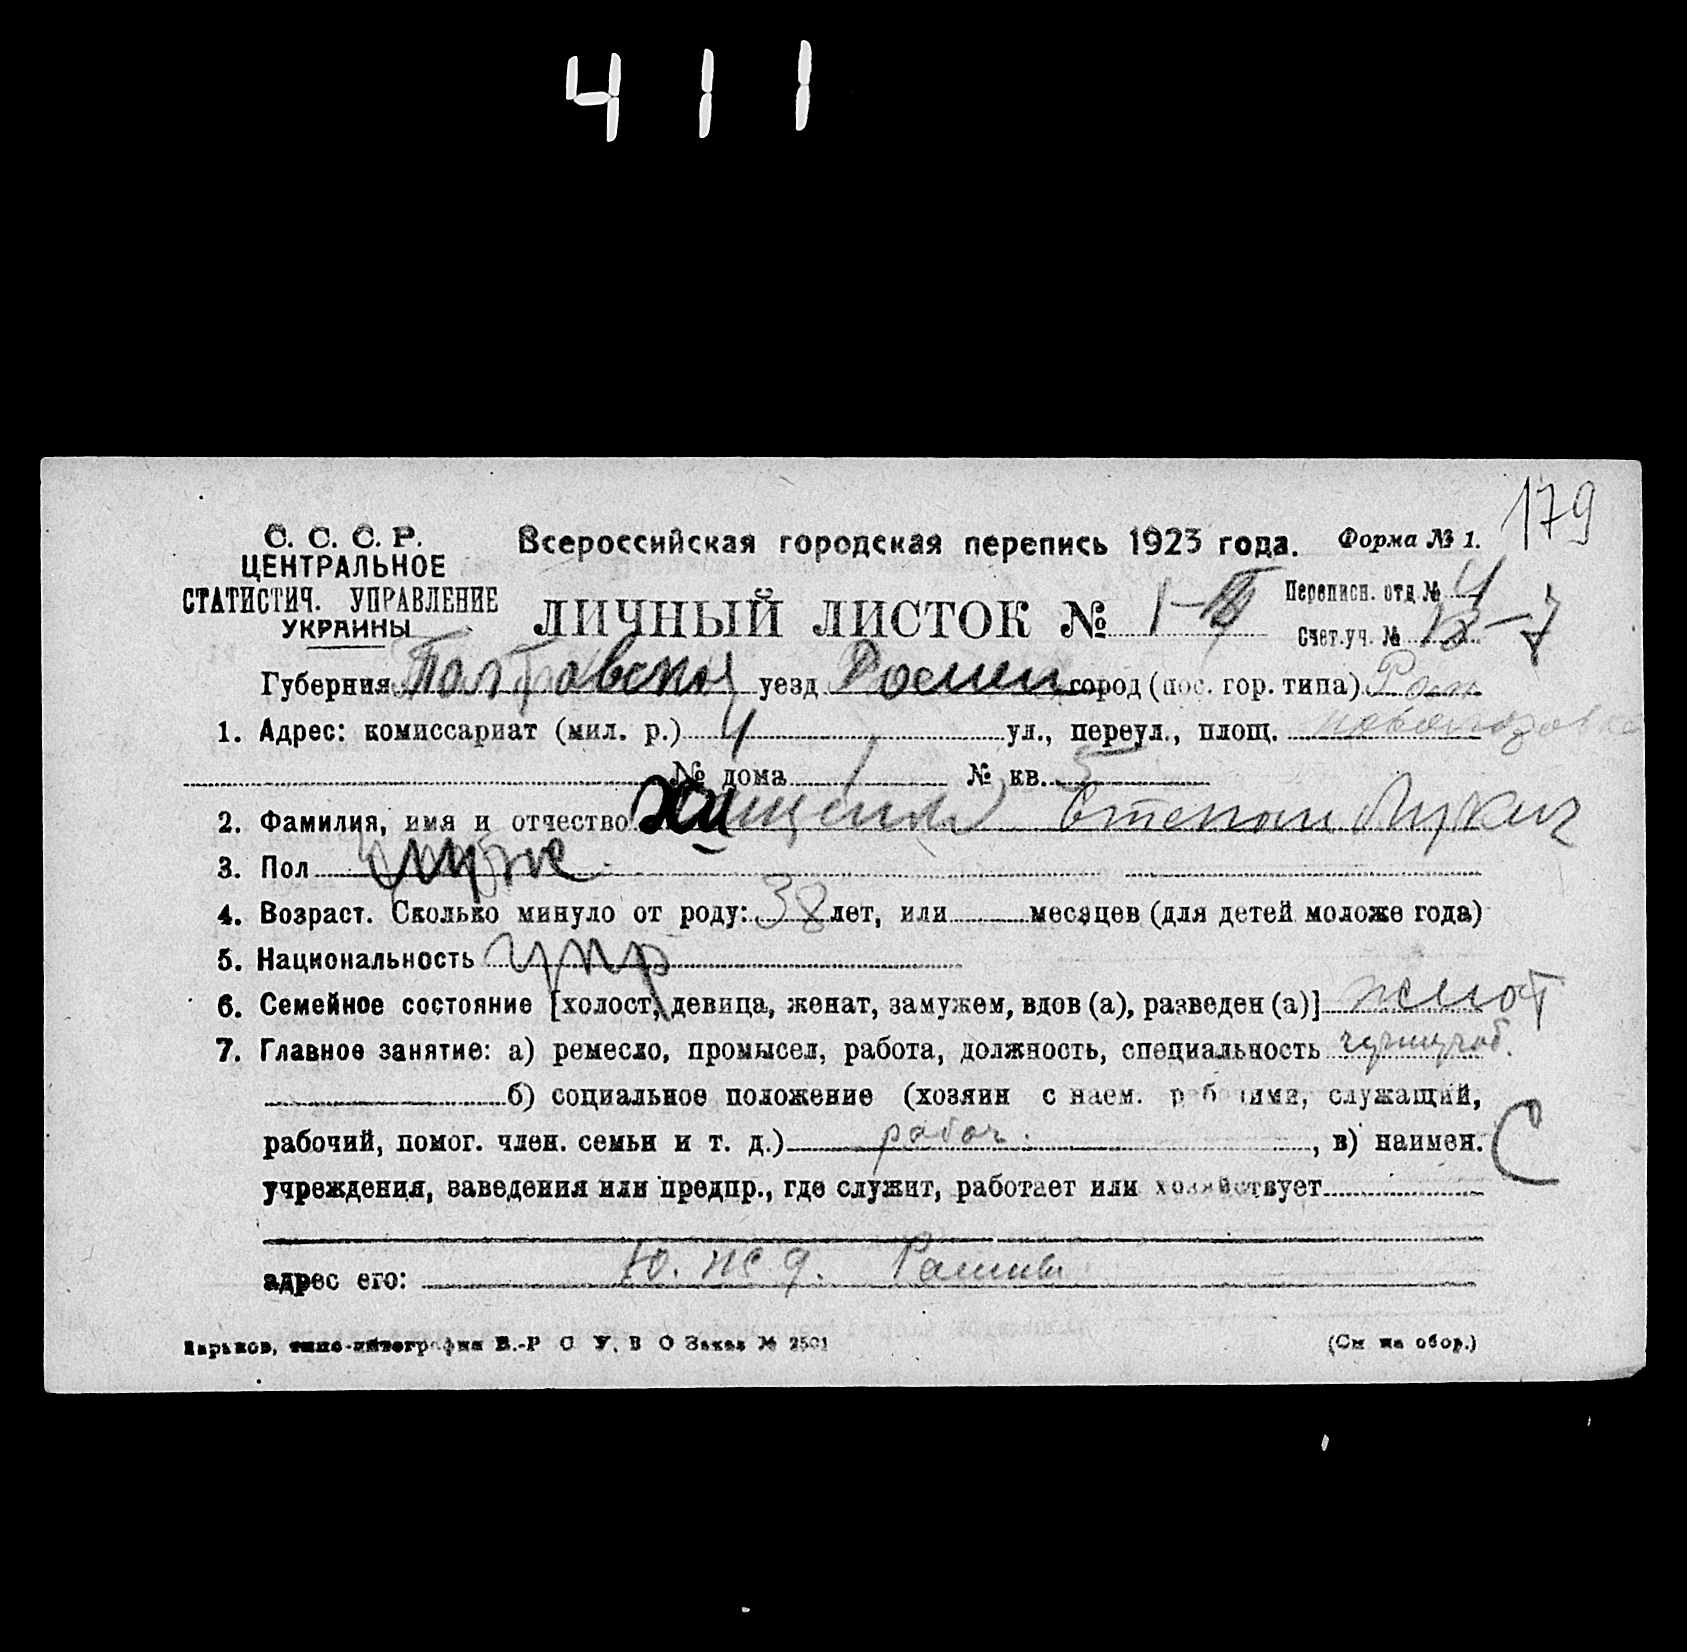 4 1 1
179
С. С. С. Р.
ЦЕНТРАЛЬНОЕ
СТАТИСТИЧ. УПРАВЛЕНИЕ
УКРАИНЫ
Всероссийская городская перепись 1923 года. Форма № 1.
ЛИЧНЫЙ ЛИСТОК № 1-
Переписн. отд № 4
Счет.уч. № -7
Губерния Полтавская уезд Ромен город (пос. гор. типа) Ром
1. Адрес: комиссариат (мил. р.) 4 ул., переул., площ.
№ дома 1 № кв. 5
2. Фамилия, имя и отчество Степан Лукич
3. Пол муж
4. Возраст. Сколько минуло от роду: 38 лет, или месяцев (для детей моложе года)
5. Национальность укр
6. Семейное состояние [холост, девица, женат, замужем, вдов (а), разведен (а)] женат
7. Главное занятие: а) ремесло, промысел, работа, должность, специальность
б) социальное положение (хозяин с наем. рабочими, служащий,
рабочий, помог. член. семьи и т. д.) рабоч. , в) наимен. С
учреждения, заведения или предпр., где служит, работает или хозяйствует
адрес его: Ю. ж д. Ромны
Харьков, типо-литография В.-Р С У, В О Заказ № 2501 (См на обор.)